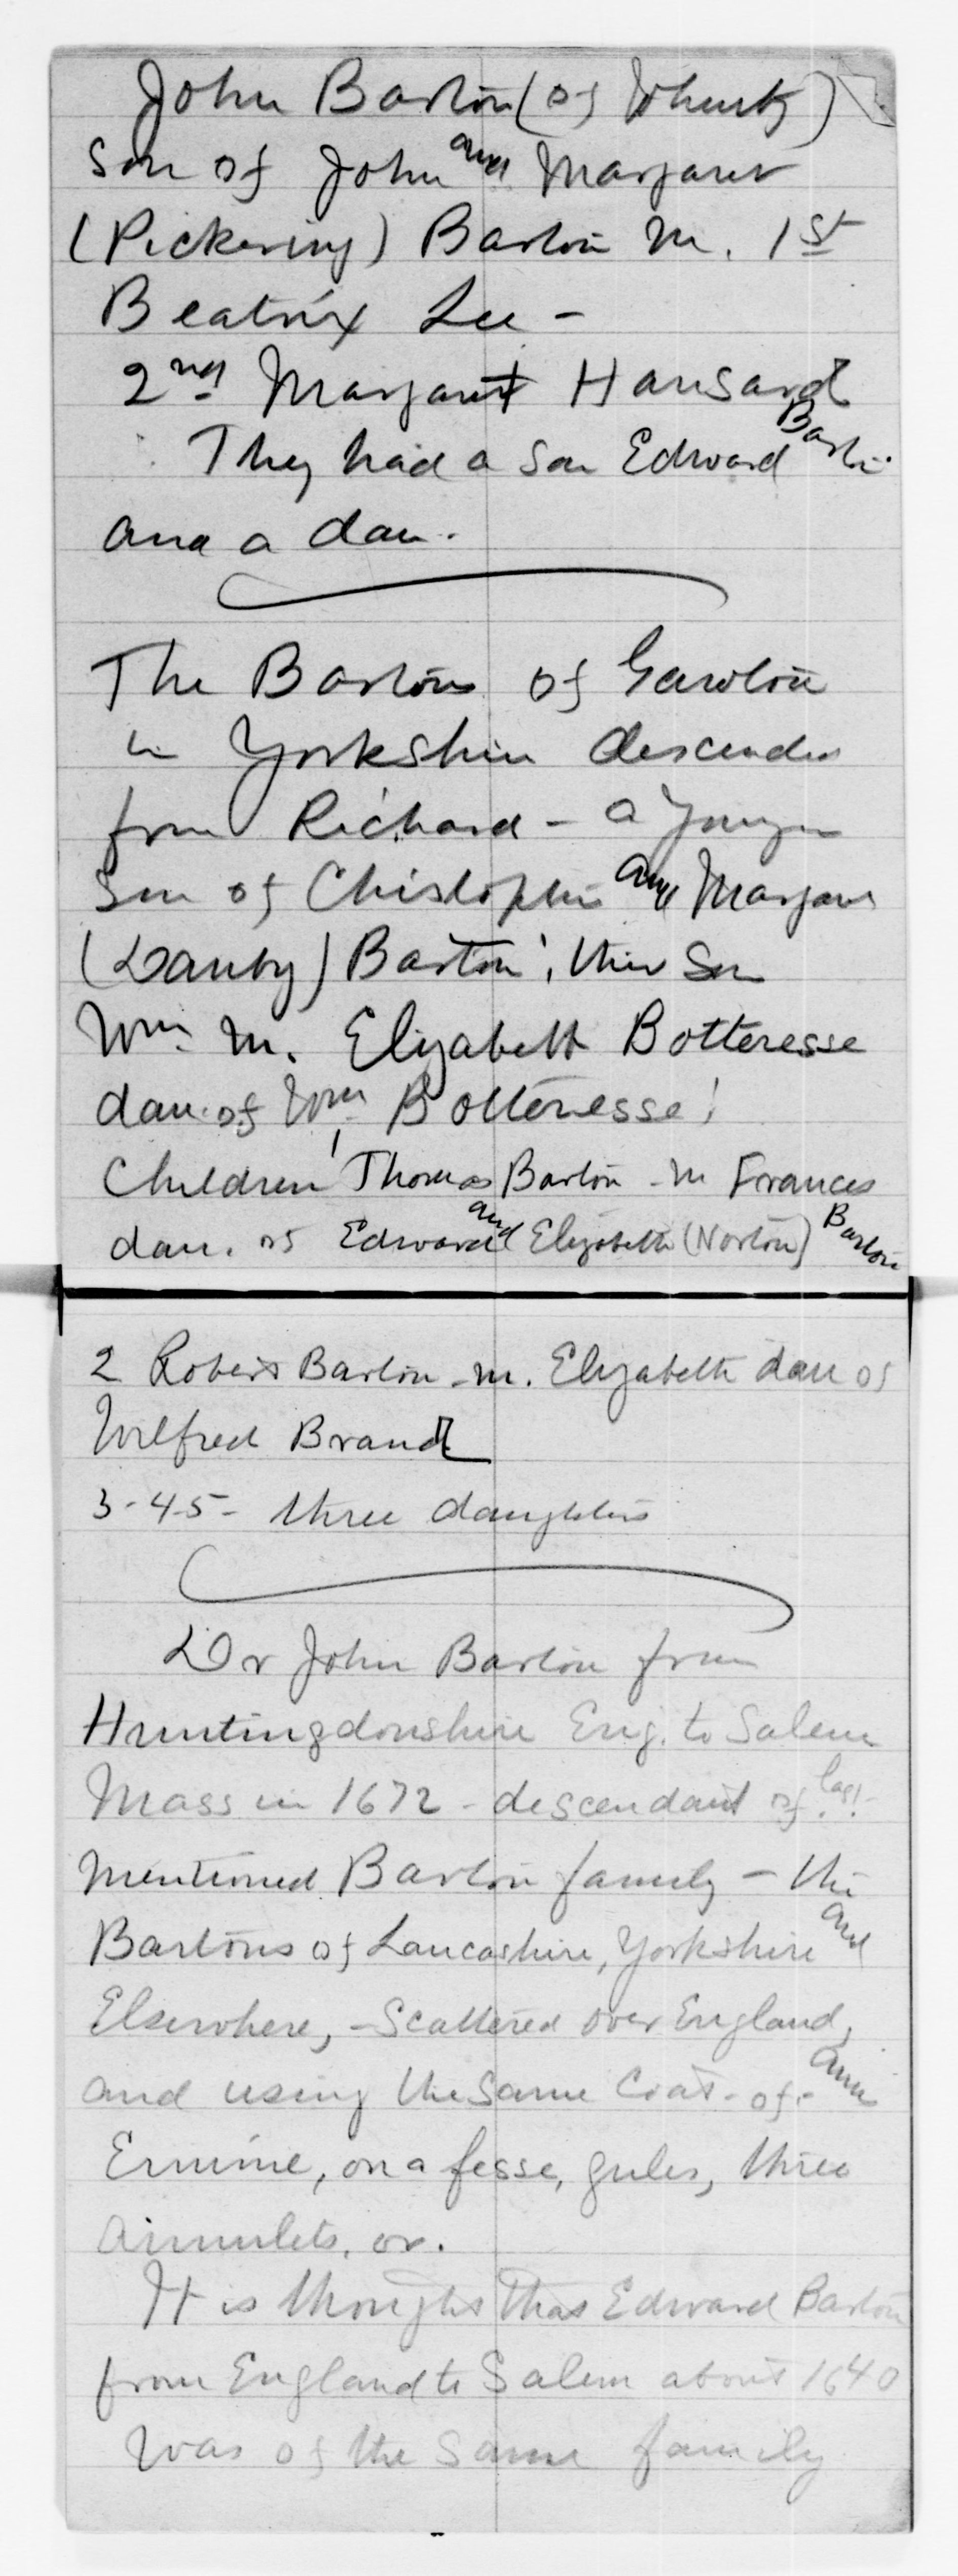 John Barton (of Whenby)
Son of John and Margaret
(Pickering) Barton m. 1st
Beatrix Lee -
2nd Margaret Hansard
They had a son Edward Barton
and a dau.
The Bartons of Cawton
in Yorkshire descended
from Richard - a younger
Son of Christopher and Margaret
(Danby) Barton; their son
Wm. m. Elizabeth Botteresse
dau. of Wm. Botteresse;
Children, Thomas Barton - m Frances
dau. of Edward and Elizabeth (Norton) Barton
2 Robert Barton - m. Elizabeth dau of
Wilfred Brandt
3-4-5- three daughters
Dr John Barton from
Huntingdonshire Eng. to Salem
Mass in 1672 - descendant of last
mentioned Barton family - the
Bartons of Lancashire, Yorkshire and
Elsewhere, - Scattered over England,
and using the same Coat-of-Arms
Ermine, on a fesse, gules, three
annulets, or.
It is thought that Edward Barton
from England to Salem about 1640
was of the same family